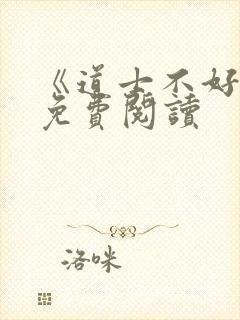 《道士不好
免費閱讀
洛咪